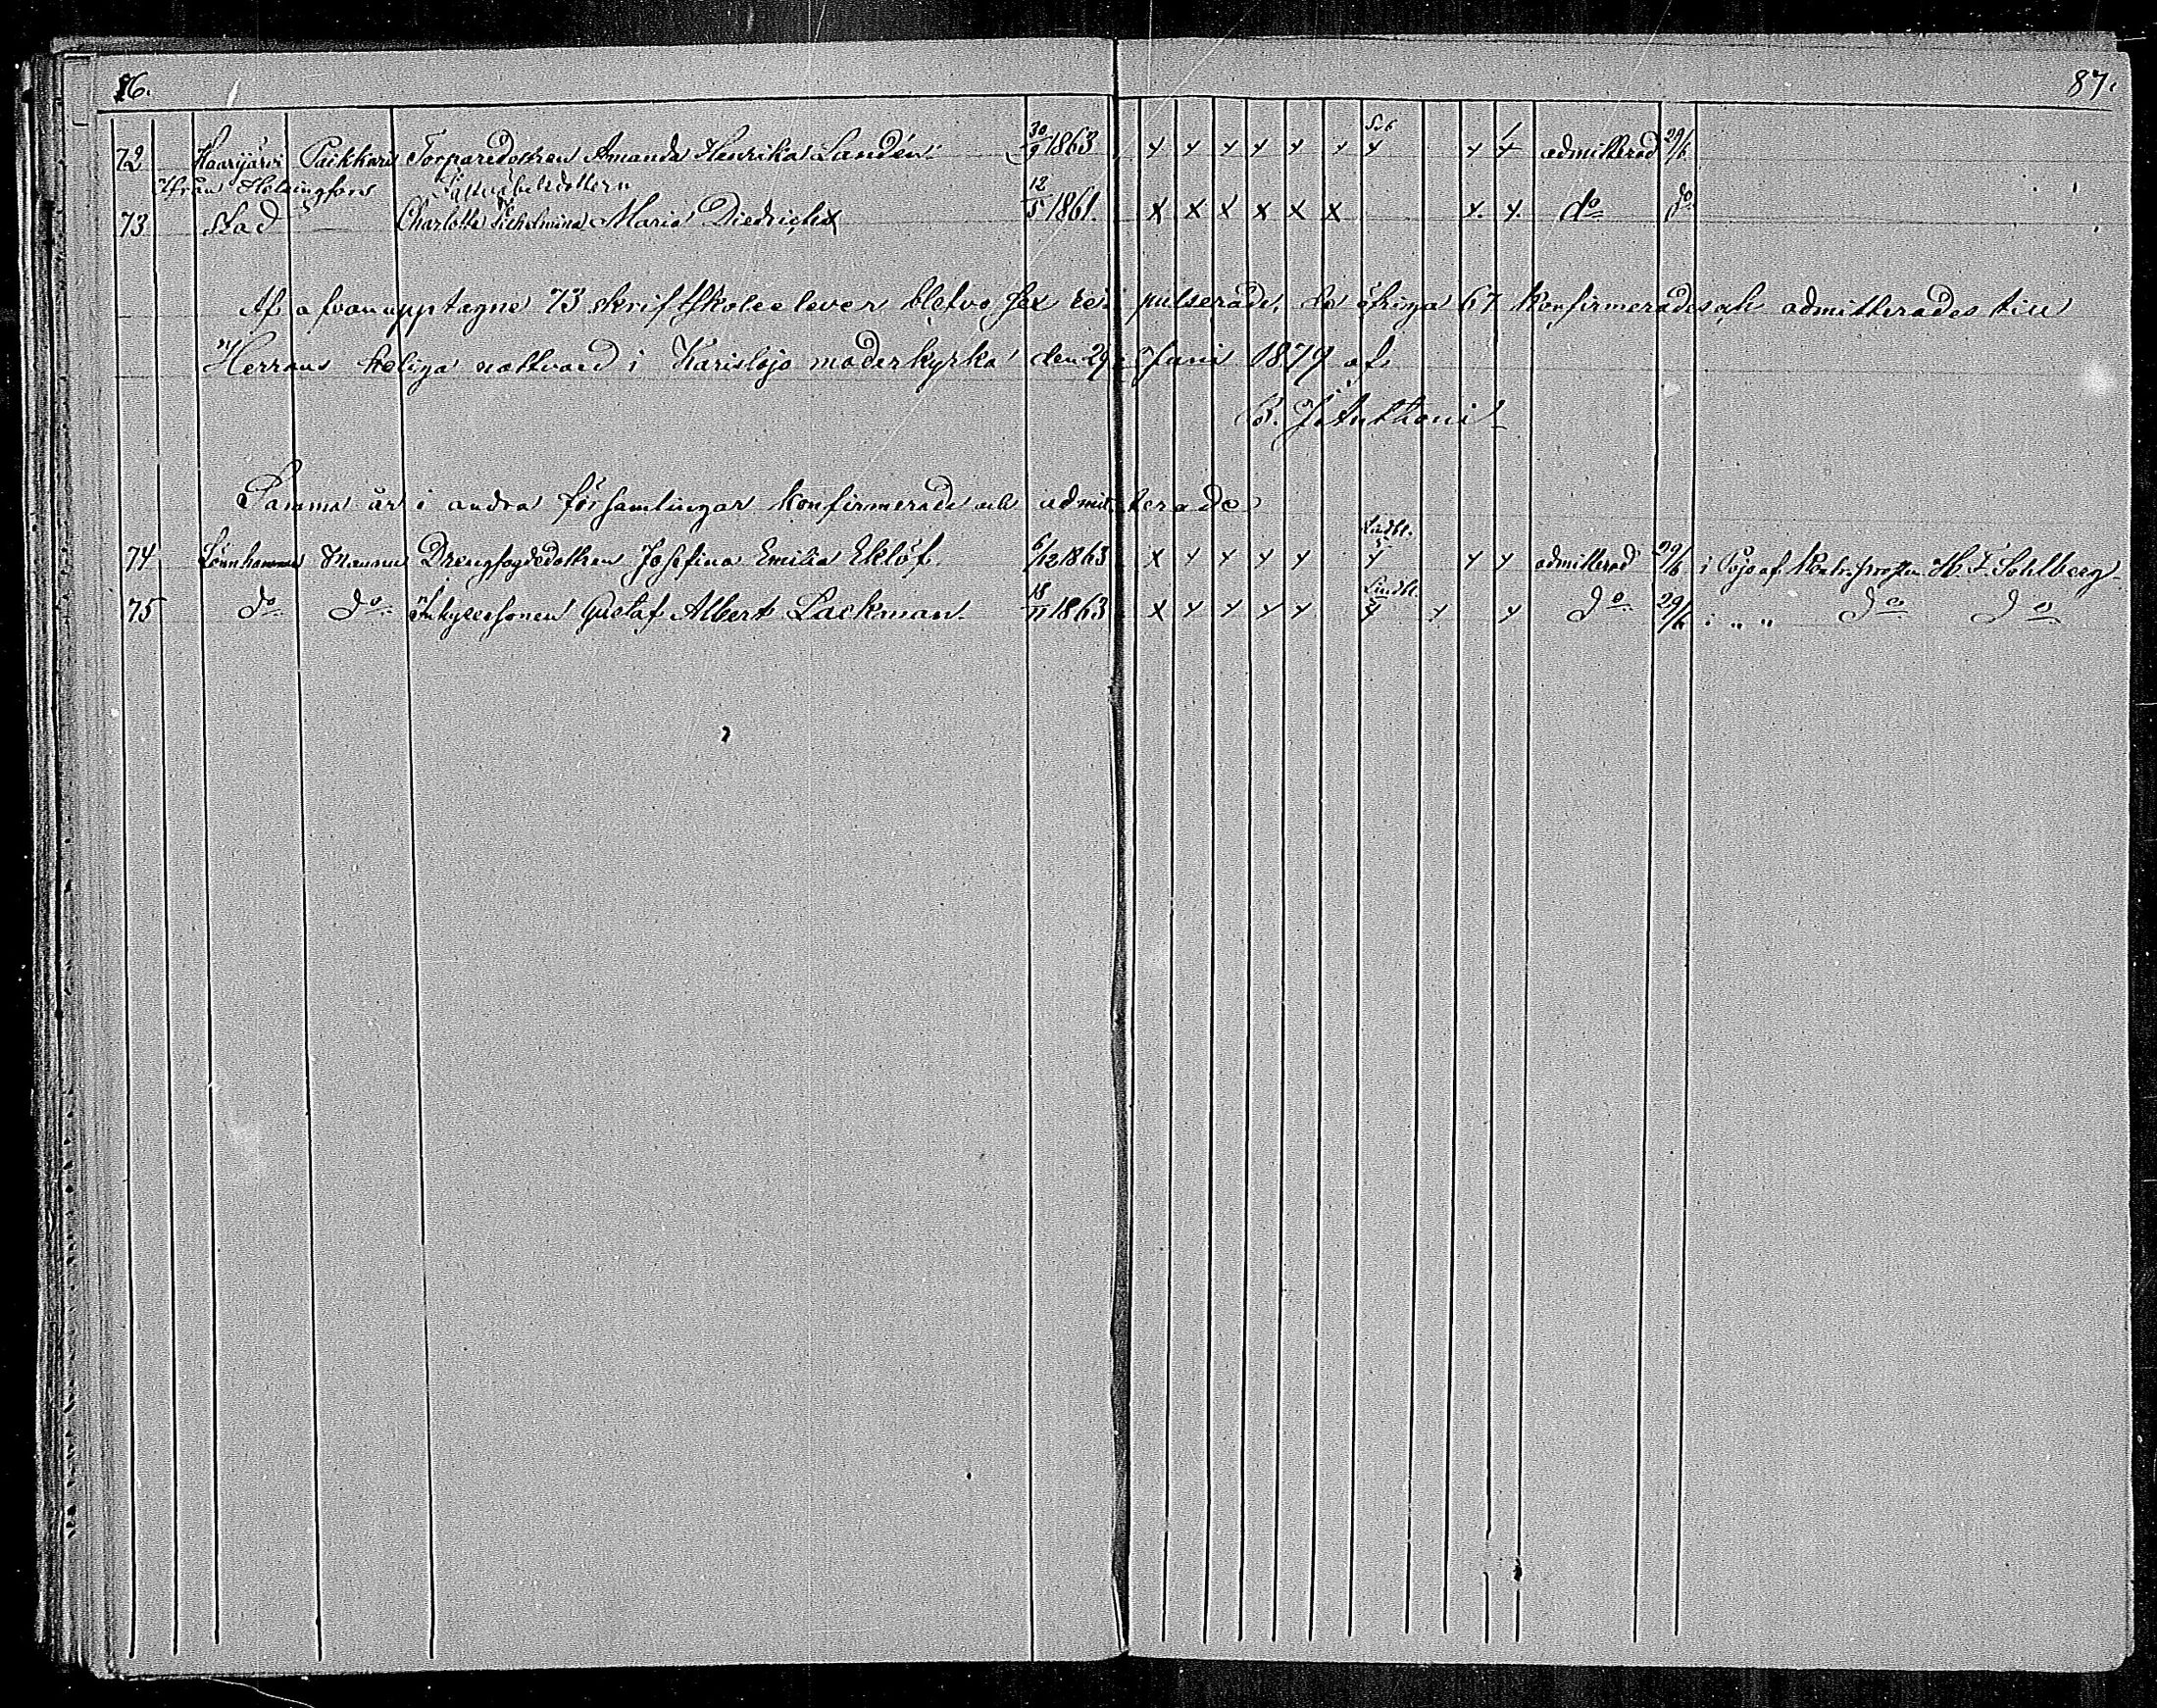 86. 87.
72 Haarjärvi Paikkari Torparedottren Amanda Henrika Landén. 30/9 1863 x x x x x x x x x admitterad 29/6
Ifrån Helsingfors Fältväbelsdottern
73 stad Charlotta Vilhelmina Maria Diedrichs 12/5 1861. x x x x x x x. x. do do
Af ofvanupptagne 73 skriftskoleelever blefvo sex repulserade, de öfriga 67 konfirmerades och admitterades till
Herrans heliga nattvard i Karislojo moderkyrka den 29 Juni 1879 af
B. J. Anthoni
Samma år i andra församlingar konfirmerade och admitterade
74 Lönnhammar Drengfogdedottren Josefina Emilia Eklöf. 6/12 1863 x x x x x x x x admitterad 29/6 i Pojo af Kontr.prosten H. F. Sohlberg.
75 do do Inhysessonen Gustaf Albert Lackman. 18/11 1863 x x x x x x x x do 29/6 i " " do do